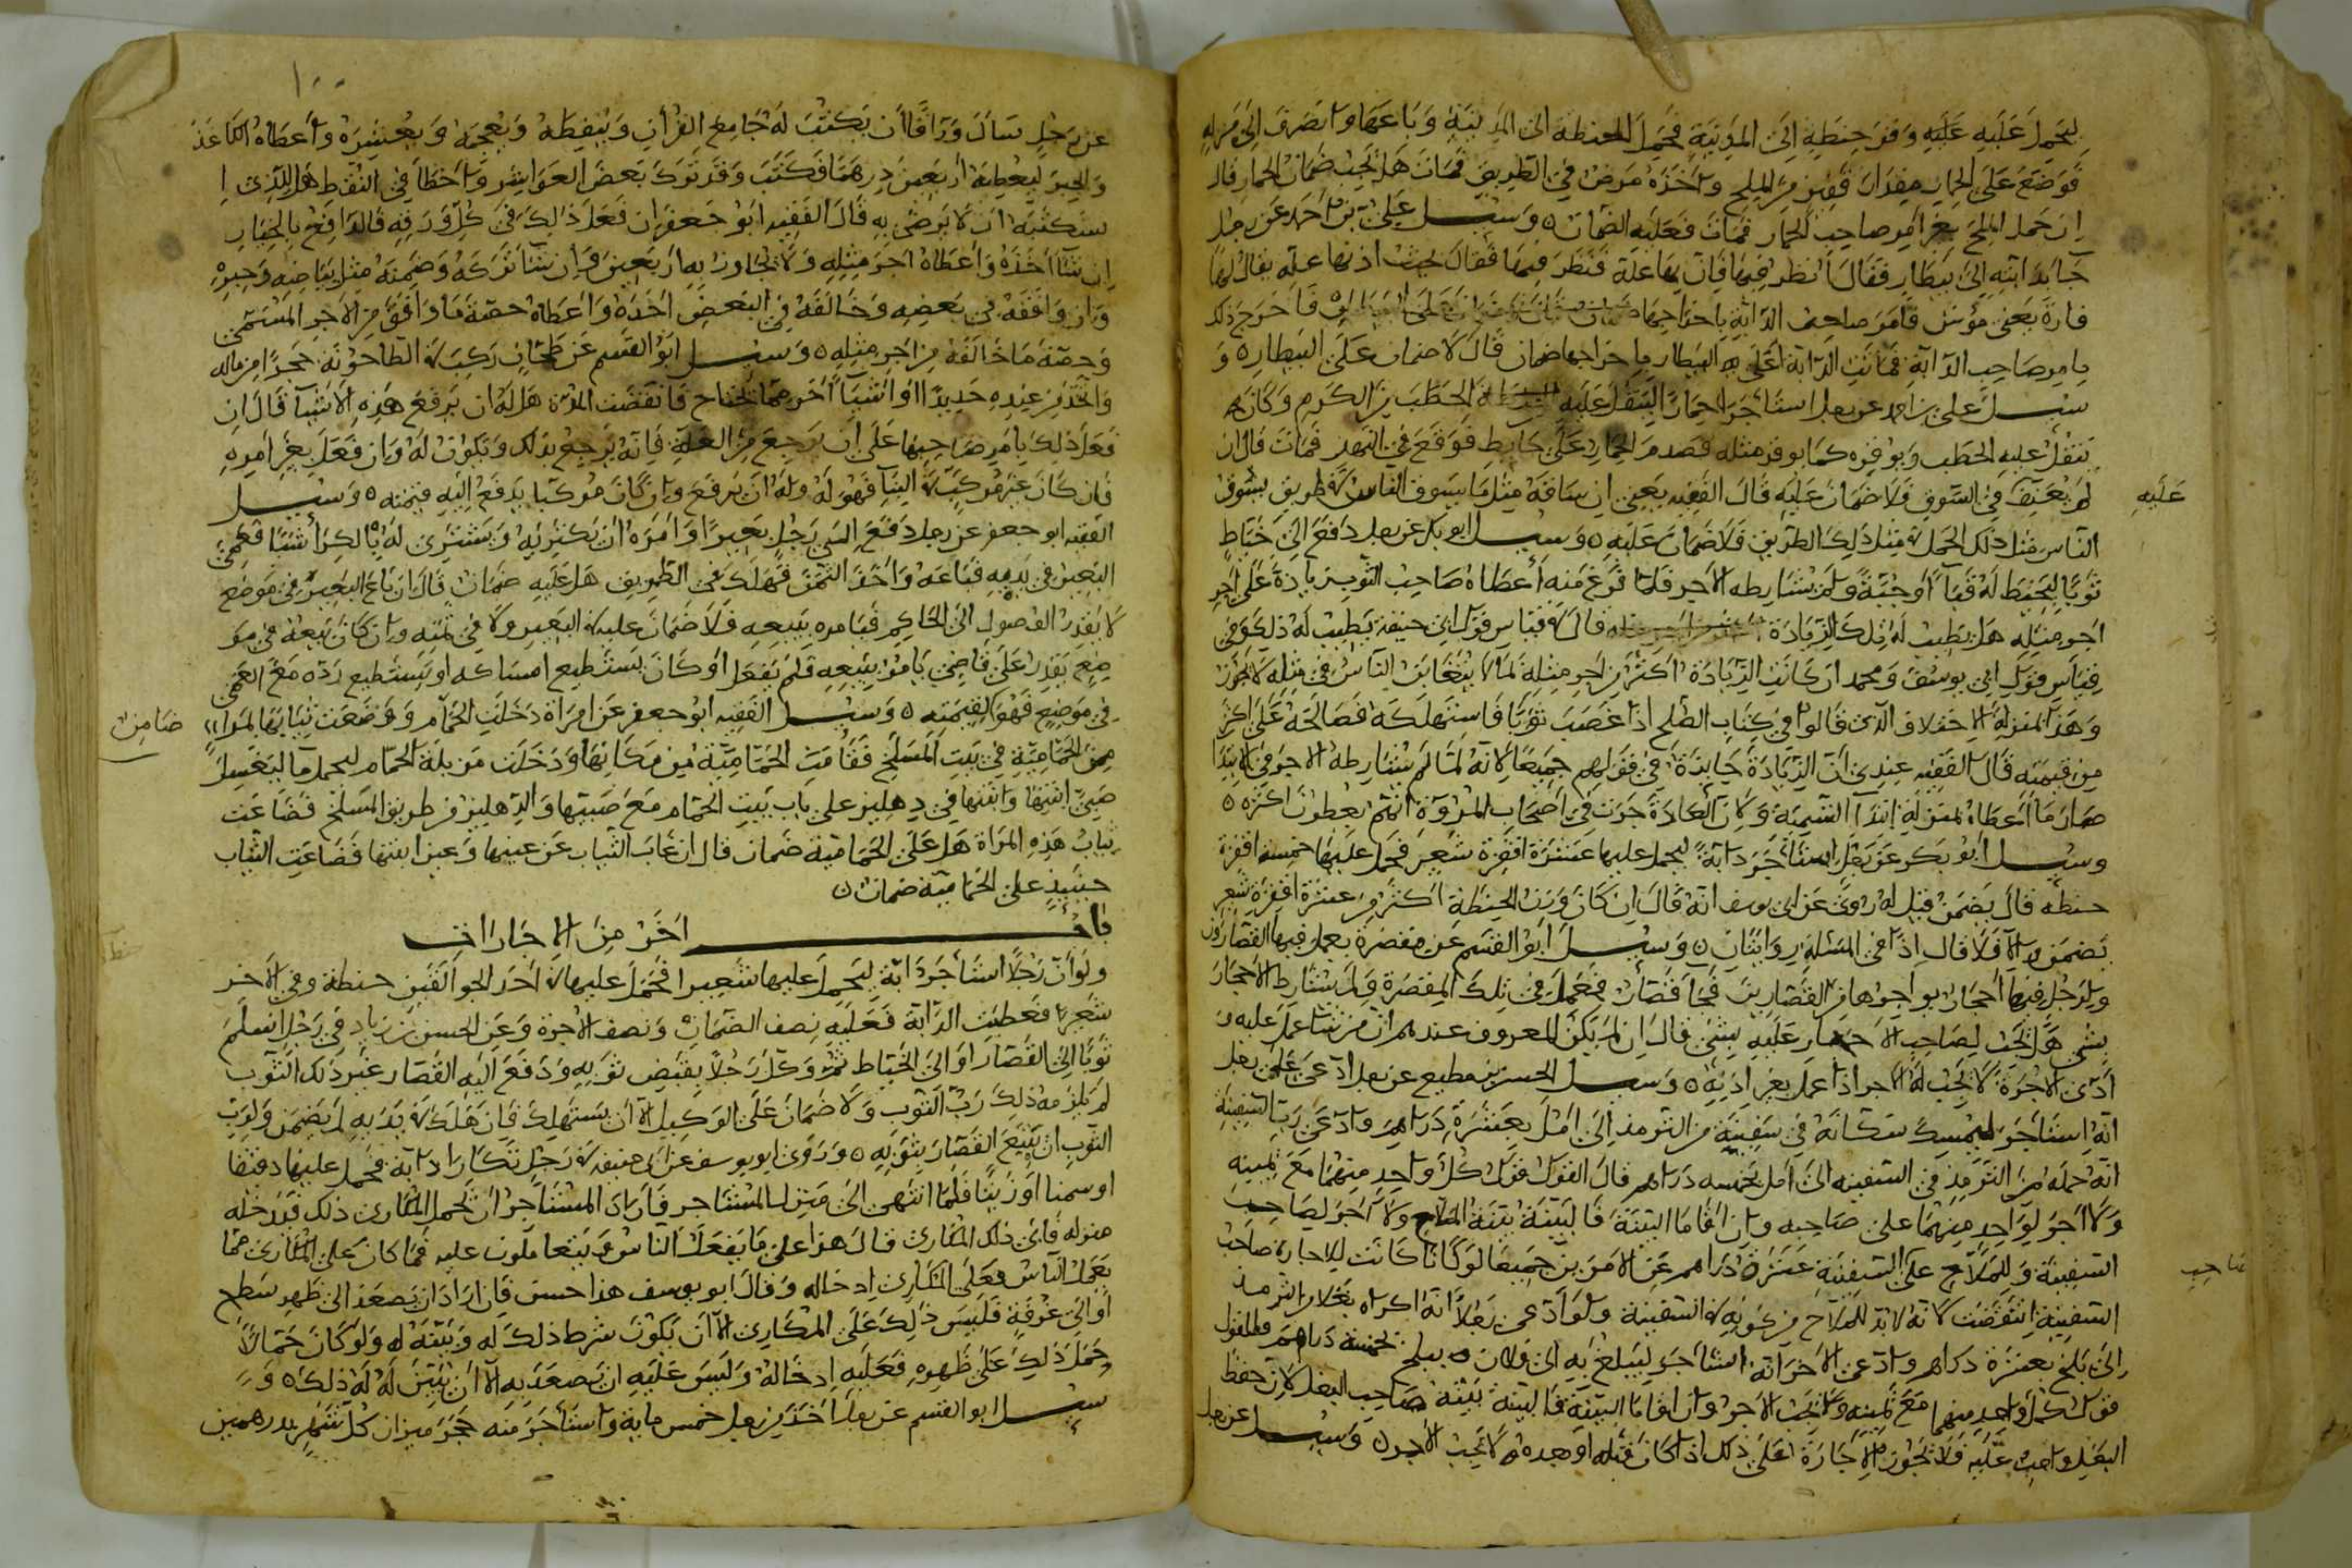 ليحمل عليه وقر حنطة إلى المدينة فحمل الحنطة الى المدينة وباعها وانصرف إلى منزله
فوضع على الحمار مقدار قفيز من الملح وأخذه مرض في الطريق فمات هل يجب ضمان الحمار قال
إن حمل الملح بغير أمر صاحب الحمار فمات فعليه الضمان وسئل علي بن احمد عن رجل
جاء بدابته إلى بيطار فقال أنظر فيها فإن بها علة فنظر فيها فقال تحت أذنها علة يقال لها
فارة يعني موش فأمر صاحب الدابة باخراجها فأخرج ذلك
بامر صاحب الدابة فماتت الدابة أعلى البيطار باخراجها ضمان قال لا ضمان على البيطار و
سئل علي بن احمد عن رجل استأجر حمارا لينقل عليه الحطب من الكرم وكان
ينقل عليه الحطب ويوقره كما يوقر مثله فصدم الحمار على حايط فوقع في النهر فمات قال ان
لم يعنف في السوق فلا ضمان عليه قال الفقيه يعني ان ساقه مثل ما يسوق الناس في طريق يسوق
عليه
الناس مثل ذلك الحمل في مثل ذلك الطريق فلا ضمان عليه وسئل ابو بكر عن رجل دفع الى خياط
ثوبا ليخيط له قباء أو جبة ولم يشارطه الاجر فلما فرغ منه أعطاه صاحب الثوب زيادة على اجر
اجر مثله هل يطيب له تلك الزيادة قال في قياس قول ابي حنيفة يطيب له ذلك وفي
قياس قول ابي يوسف ومحمد ان كانت الزيادة اكثر من اجر مثله لما لا يتغابن الناس في مثله لا يجوز
وهذا بمنزلة الاختلاف الذي قالوا في كتاب الصلح اذا غصب ثوبا فاستهلكه فصالحه على اكثر
من قيمته قال الفقيه عندي أن الزيادة جايزة في قولهم جميعا لأنه لما لم يشارطه الاجر في الابتدا
صار ما أعطاه بمنزلة ابتداء التسمية ولان العادة جرت في أصحاب المروة انهم يعطون اكثره
وسئل ابو بكر عن رجل استأجر دابة ليحمل عليها عشرة اقفزة شعير فحمل عليها خمسة اقفزة
حنطة قال يضمن قيل له روي عن ابي يوسف انه قال ان كان وزن الحنطة اكثر من عشرة اقفزة شعير
يضمن والا فلا قال اذا في المسئلة روايتان وسئل ابو القسم عن مقصرة يعمل فيها القصارون
ولرجل فيها احجار يواجرها من القصارين فجا قصار فعمل في تلك المقصرة ولم يشارط الاحجار
بشي هل يجب لصاحب الاحجار عليه بشئ قال ان لم يكن المعروف عندهم ان من شا عمل عليه و
أدى الاجرة لا يجب له الاجر اذا عمل بغير اذنه وسئل الحسن بن مطيع عن رجل ادعى على رجل
انه استأجر ليمسك سكانه في سفينة من الترمذ إلى امل بعشرة دراهم وادعى رب السفينة
انه حمله من الترمذ في السفينه الى امل بخمسه دراهم قال القول قول كل واحد منهما مع يمينه
ولا اجر لواحد منهما على صاحبه وان اقاما البينة فالبينة بينة الملاح ولا اجر لصاحب
السفينة وللملاح على السفينة عشرة دراهم عن الامرين جميعا لو كانا كانت للاجارة صاحب
صاحب
السفينة انتقضت لانه لابد للملاح من كونه في السفينة ولو ادعى رجلا انه اكراه بغلا من الترمذ
إلى بلخ بعشرة دراهم وادعى الاخر انه استأجر ليبلغ به الى فلان ببلخ بخمسة دراهم فالقول
قول كل واحد منهما مع يمينه ولا يجب الاجر وان اقاما البينة فالبينة بينة صاحب البغل لان حفظ
البغل واجب عليه فلا تجوز الاجارة على ذلك اذا كان قبله او بعده ولا يجب الاجر وسئل عن رجل
١٠٠
عن رجل سأل وراقا أن يكتب له جامع القرآن وينقطه ويعجمه ويعشره وأعطاه الكاغذ
والحبر ليعطيه أربعين درهما فكتب وقد ترك بعض العواشر وأخطأ في النقط هل للذي ا
ستكتبه ان لا يرضى به قال الفقيه ابو جعفر ان فعل ذلك في كل ورقه فالدافع بالخيار
ان شا اخذه واعطاه اجر مثله ولا يجاوز به اربعين وان شا تركه وضمنه مثل بياضه وحبره
وان وافقه في بعضه وخالفه في البعض اخذه واعطاه حصة ما وافق من الاجر المسمى
وحصة ما خالفه من اجر مثله وسئل ابو القسم عن طحان ركب في الطاحونة حجرا من ماله
واتخذ من عنده حديدا او اشيا أخر مما يحتاج فانقضت المدة هل له ان يرفع هذه الأشيا قال ان
فعل ذلك بامر صاحبها على ان يرجع من الغلة فانه يرجع بذلك وتكون له وان فعل بغير امره
فان كان غير مركب في البنا فهو له وله ان يرفع وان كان مركبا يدفع اليه قيمته وسئل
الفقيه ابو جعفر عن رجل دفع الى رجل بعيرا وامره ان يكريه ويشتري له بالكرا شيا فعمي
البعير في يديه فباعه واخذ الثمن فهلك في الطريق هل عليه ضمان قال ان باع البعير في موضع
لا يقدر الوصول الى الحاكم فيامره ببيعه فلا ضمان عليه في البعير ولا في ثمنه وان كان بيعه في مو
ضع يقدر على قاضي يامره ببيعه فلم يفعل او كان يستطيع امساكه او يستطيع رده مع العمى
في موضع فهو القيمته وسئل الفقيه ابو جعفر عن امراة دخلت الحمام ووضعت ثيابها بمراا
ضامن
من الحمامية في بيت المسلخ فقامت الحمامية من مكانها ودخلت مزبلة الحمام ليحمل ما ليغسل
صبي ابنتها وابنتها في دهليز على باب بيت الحمام مع صبيها والدهليز في طريق المسلخ فضاعت
ثياب هذه المراة هل على الحمامية ضمان قال ان غاب الثياب عن عينها وعين ابنتها فضاعت الثياب
حينيذ على الحمامية ضمان
باب اخر من الاجارات
ولو أن رجلا استأجر دابة ليحمل عليها شعيرا فحمل عليها في أحد الجوالقين حنطة وفي الآخر
شعيرا فعطبت الدابة فعليه نصف الضمان ونصف الاجرة وعن الحسن بن زياد في رجل اسلم
ثوبا إلى القصار او الى الخياط ثم وكل رجلا بقبض ثوبه ودفع اليه القصار غير ذلك الثوب
لم يلزمه ذلك رب الثوب ولا ضمان على الوكيل الا ان يستهلك فان هلك في يديه لم يضمن ولرب
الثوب ان يتبع القصار بثوبه وروى ابو يوسف عن ابي حنيفه في رجل تكارا دابة فحمل عليها دقيقا
او سمنا او زيتا فلما انتهى الى منزل المستاجر فاراد المستاجر ان يحمل المكاري ذلك فيدخله
منزله فابى ذلك المكاري قال هذا على ما يفعل الناس ويتعاملون عليه فما كان على المكاري مما
يعمل الناس فعلى المكاري ادخاله وقال ابو يوسف هذا حسن فان اراد ان يصعد الى ظهر سطح
أو الى غرفة فليس ذلك على المكاري الا ان يكون شرط ذلك له وبينه له ولو كان حمالا
حمل ذلك على ظهره فعليه ادخاله وليس عليه ان يصعد به الا أن يبين له ذلك و
سئل ابو القسم عن رجل اخذ من رجل خمس ماية واستأجر منه حجر ميزان كل شهر بدرهمين